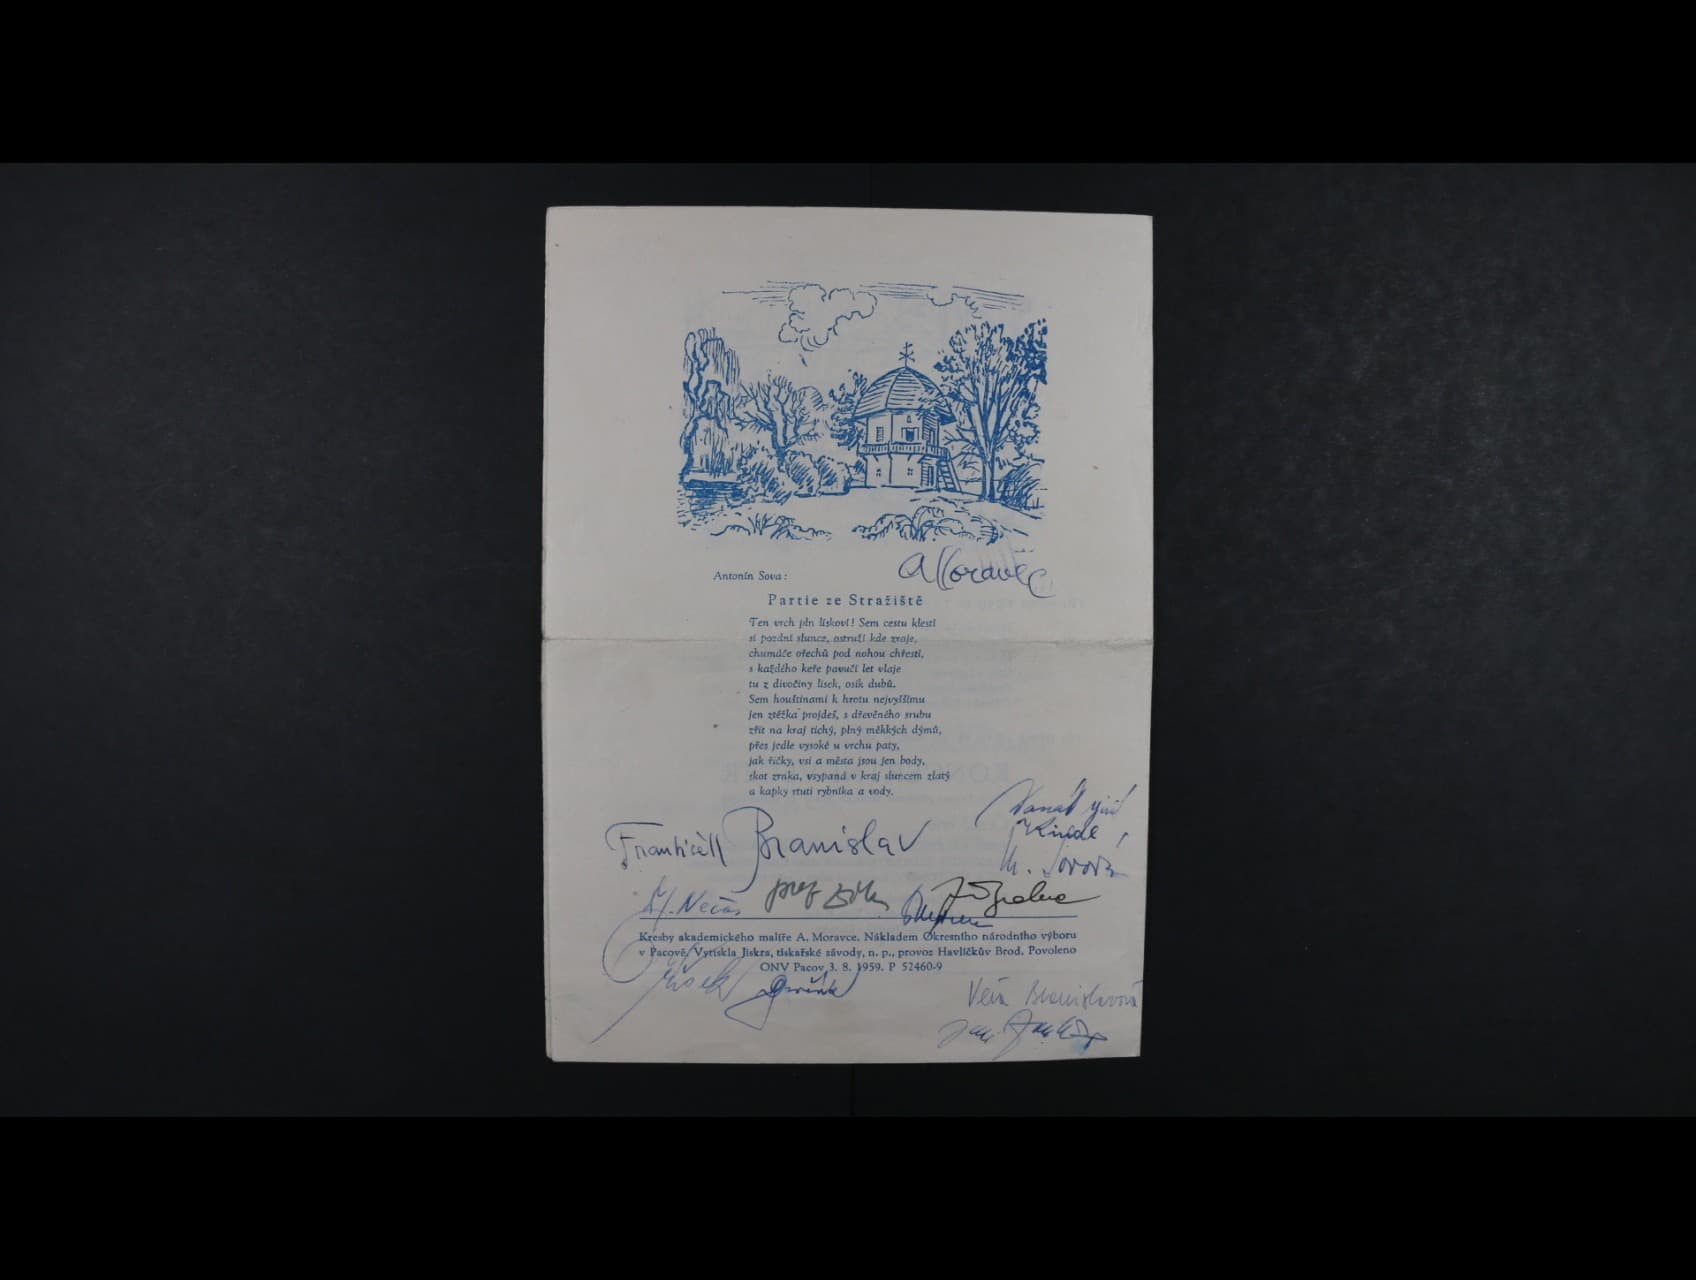 A Moravec
Antonín Sova:
Partie ze Stražiště
Ten vrch pln lískoví! Sem cestu klestí
si pozdní slunce, ostruží kde zraje,
chumáče ořechů pod nohou chřestí,
s každého keře pavučí let vlaje
tu z divočiny lísek, osik dubů.
Sem houštinami k hrotu nejvyššímu
jen ztěžka projdeš, s dřevěného srubu
zřít na kraj tichý, plný měkkých dýmů,
přes jedle vysoké u vrchu paty,
jak říčky, vsi a města jsou jen body,
skot zrnka, vsypaná v kraj sluncem zlatý
a kapky rtuti rybníka a vody.
František Branislav
Nečas
Kresby akademického malíře A. Moravce. Nákladem Okresního národního výboru
v Pacově. Vytiskla Jiskra, tiskařské závody, n. p., provoz Havlíčkův Brod. Povoleno
ONV Pacov 3. 8. 1959. P 52460-9
Věra Branislavová
Jan